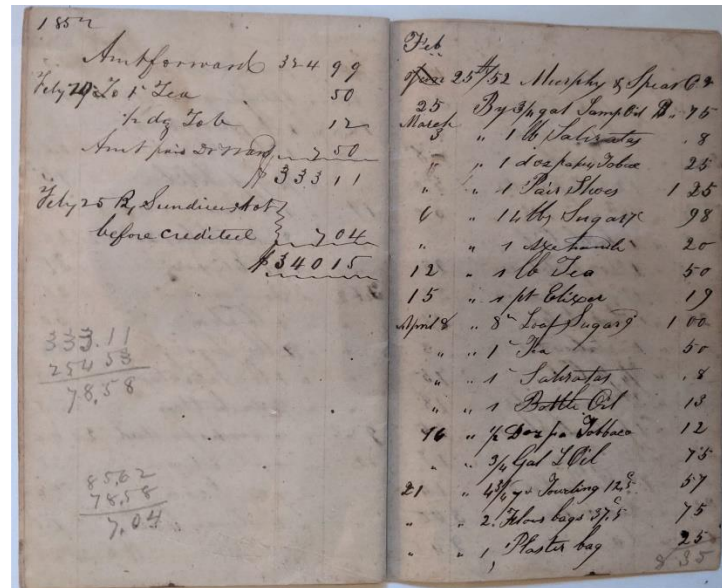 1852
Amt forward 324 99
Feby 20 To 1 Tea 50
½ dz Tob 12
Amt paid Dr Ward 7 50
$ 333 11
Feby 25 By Sundries not
before credited 7 04
$ 340 15
333.11
254 53
78,58
85,62
78,58
7,04
Feb
25th/52 Murphy & Spear Cr
25 By 3/4 gal Lamp Oil 75
March
3 " 1 lb Saliratas .8
" " 1 doz papers Tobco 25
" " 1 Pair Shoes 1 25
6 " 14 lbs Sugar 7c 98
" " 1 Axe handle 20
12 " 1 lb Tea 50
15 " 1 pt Elixer 19
April 8 " 8 Loaf Sugar 1 00
" " 1 Tea 50
" " 1 Saliratas .8
" " 1 Bottle Oil 13
16 " ½ Doz pa Tobbaco 12
" " 3/4 Gal L Oil 75
21 " 4 3/4 yd Towling 12c 57
" " 2 Flour bags 37.5 75
" " 1 Plaster bag 25
8 35